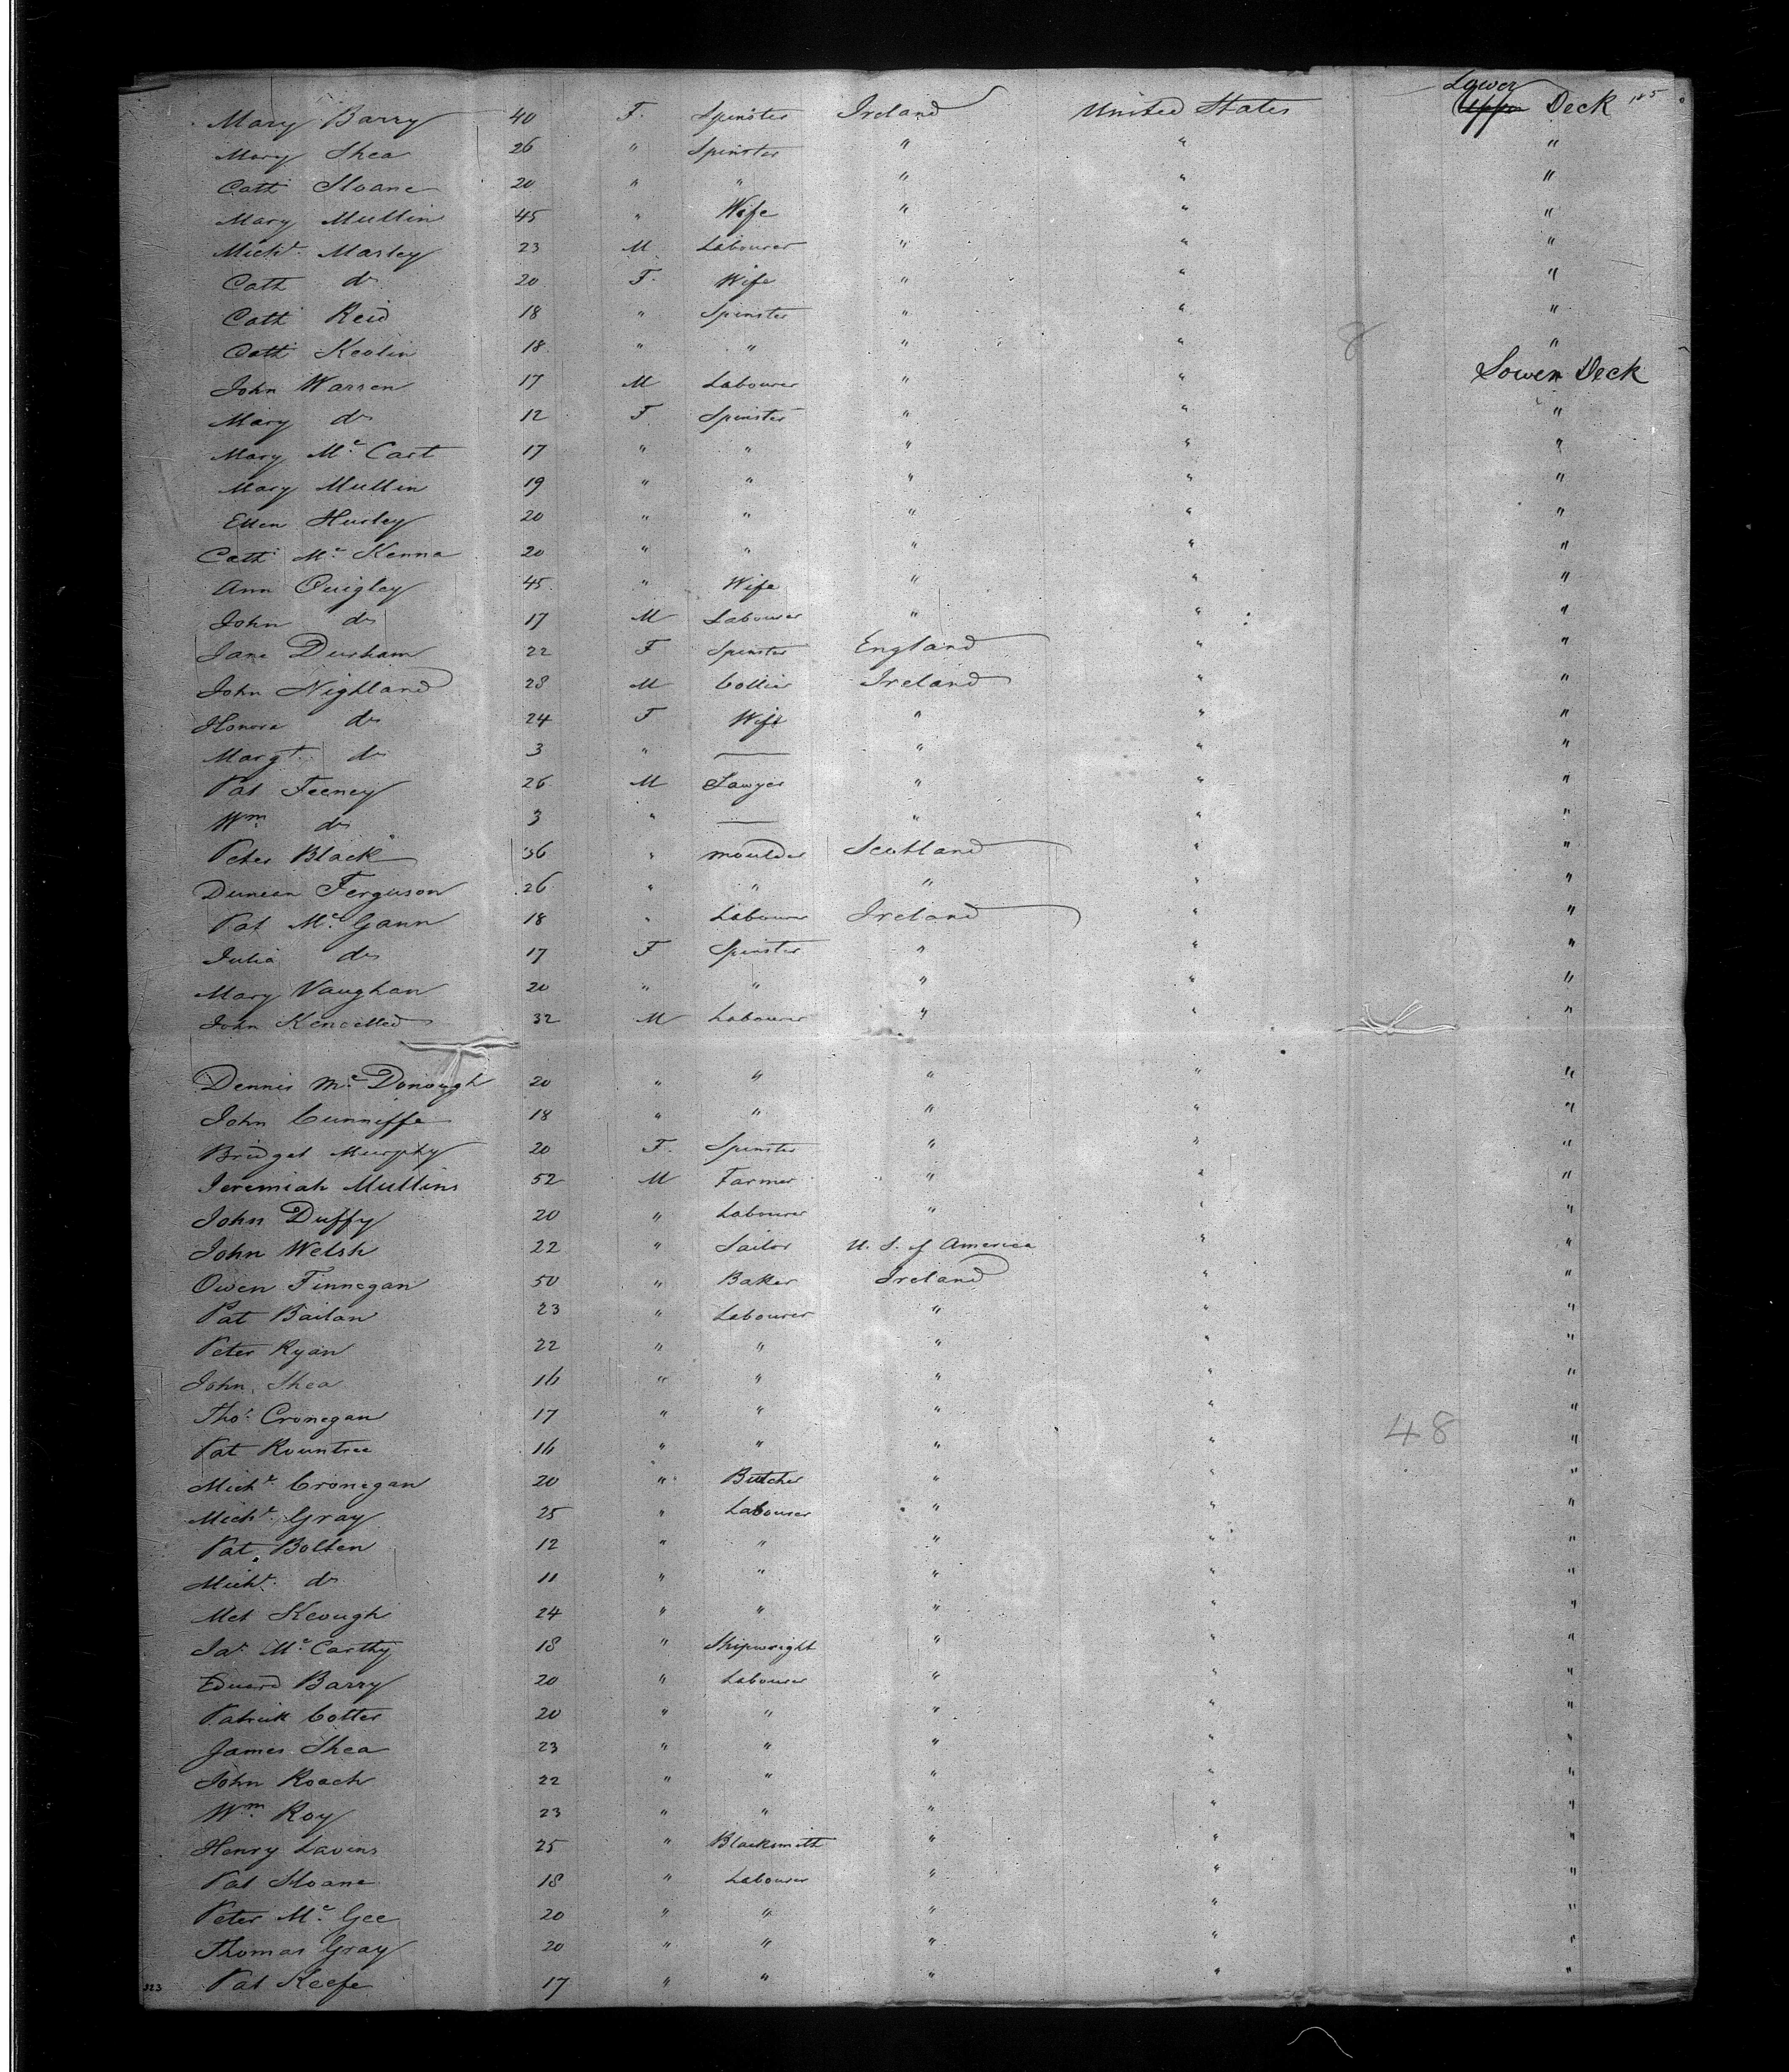 Lower
Mary Barry 40 F. Spinster Ireland United States Upper Deck 185
Mary Shea 26 " Spinster " " "
Cath Sloane 20 " " " " "
Mary Mullin 45 " Wife " " "
Michl. Marley 23 M Labourer " " "
Cath do 20 F. Wife " " "
Cath Reid 18 " Spinster " " "
Cath Keolin 18 " " " " "
John Warren 17 M Labourer " " Lower Deck
Mary do 12 F Spinster " " "
Mary Mc Cart 17 " " " " "
Mary Mullin 19 " " " " "
Ellen Hurley 20 " " " " "
Cath Mc Kenna 20 " " " " "
Ann Quigley 45 " Wife " " "
John do 17 M Labourer " " "
Jane Durham 22 F Spinster England " "
John Nighland 28 M Collier Ireland " "
Honora do 24 F Wife " " "
Margt. do 3 " — " " "
Pat Feeney 26 M Sawyer " " "
Wm do 3 " — " " "
Peter Black 36 " moulder Scotland " "
Duncan Ferguson 26 " " " " "
Pat Mc Gann 18 " Labourer Ireland " "
Julia do 17 F Spinster " " "
Mary Vaughan 20 " " " " "
John 32 M Labourer " " "
Dennis Mc Donough 20 " " " " "
John Cunniffe 18 " " " " "
Bridget Murphy 20 F. Spinster " " "
Jeremiah Mullins 52 M Farmer " " "
John Duffy 20 " Labourer " " "
John Welsh 22 " Sailor U. S. of America " "
Owen Finnegan 50 " Baker Ireland " "
Pat Bailan 23 " Labourer " " "
Peter Ryan 22 " " " " "
John Shea 16 " " " " "
Thos. Cronegan 17 " " " " "
Pat Rountree 16 " " " " 48 "
Michl. Cronegan 20 " Butcher " " "
Michl. Gray 25 " Labourer " " "
Pat Bolten 12 " " " " "
Michl. do 11 " " " " "
Mct Keough 24 " " " " "
Jas. Mc Carthy 18 " Shipwright " " "
Edward Barry 20 " Labourer " " "
Patrick Cotter 20 " " " " "
James Shea 23 " " " " "
John Roach 22 " " " " "
Wm. Roy 23 " " " " "
Henry Lavens 25 " Blacksmith " " "
Pat Sloane 18 " Labourer " " "
Peter Mc Gee 20 " " " " "
Thomas Gray 20 " " " " "
323 Pat Keefe 17 " " " " "